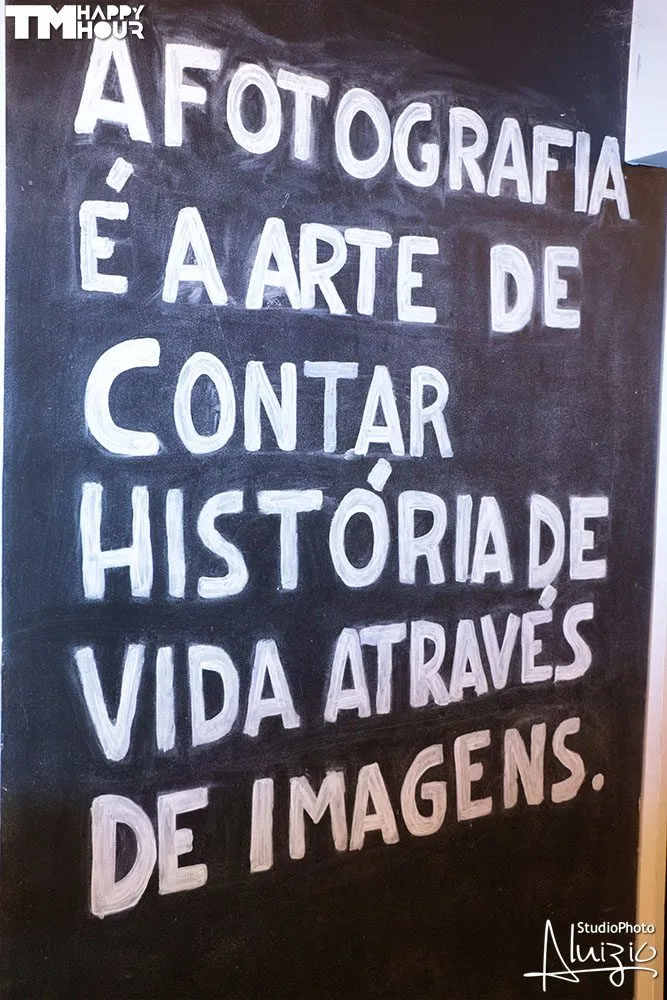 TM HAPPY HOUR
A FOTOGRAFIA
É A ARTE DE
CONTAR
HISTÓRIA DE
VIDA ATRAVÉS
DE IMAGENS.
StudioPhoto
Aluizio